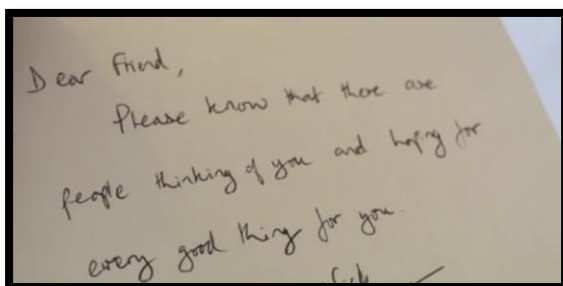 Dear Friend,
Please know that there are
people thinking of you and hoping for
every good thing for you.